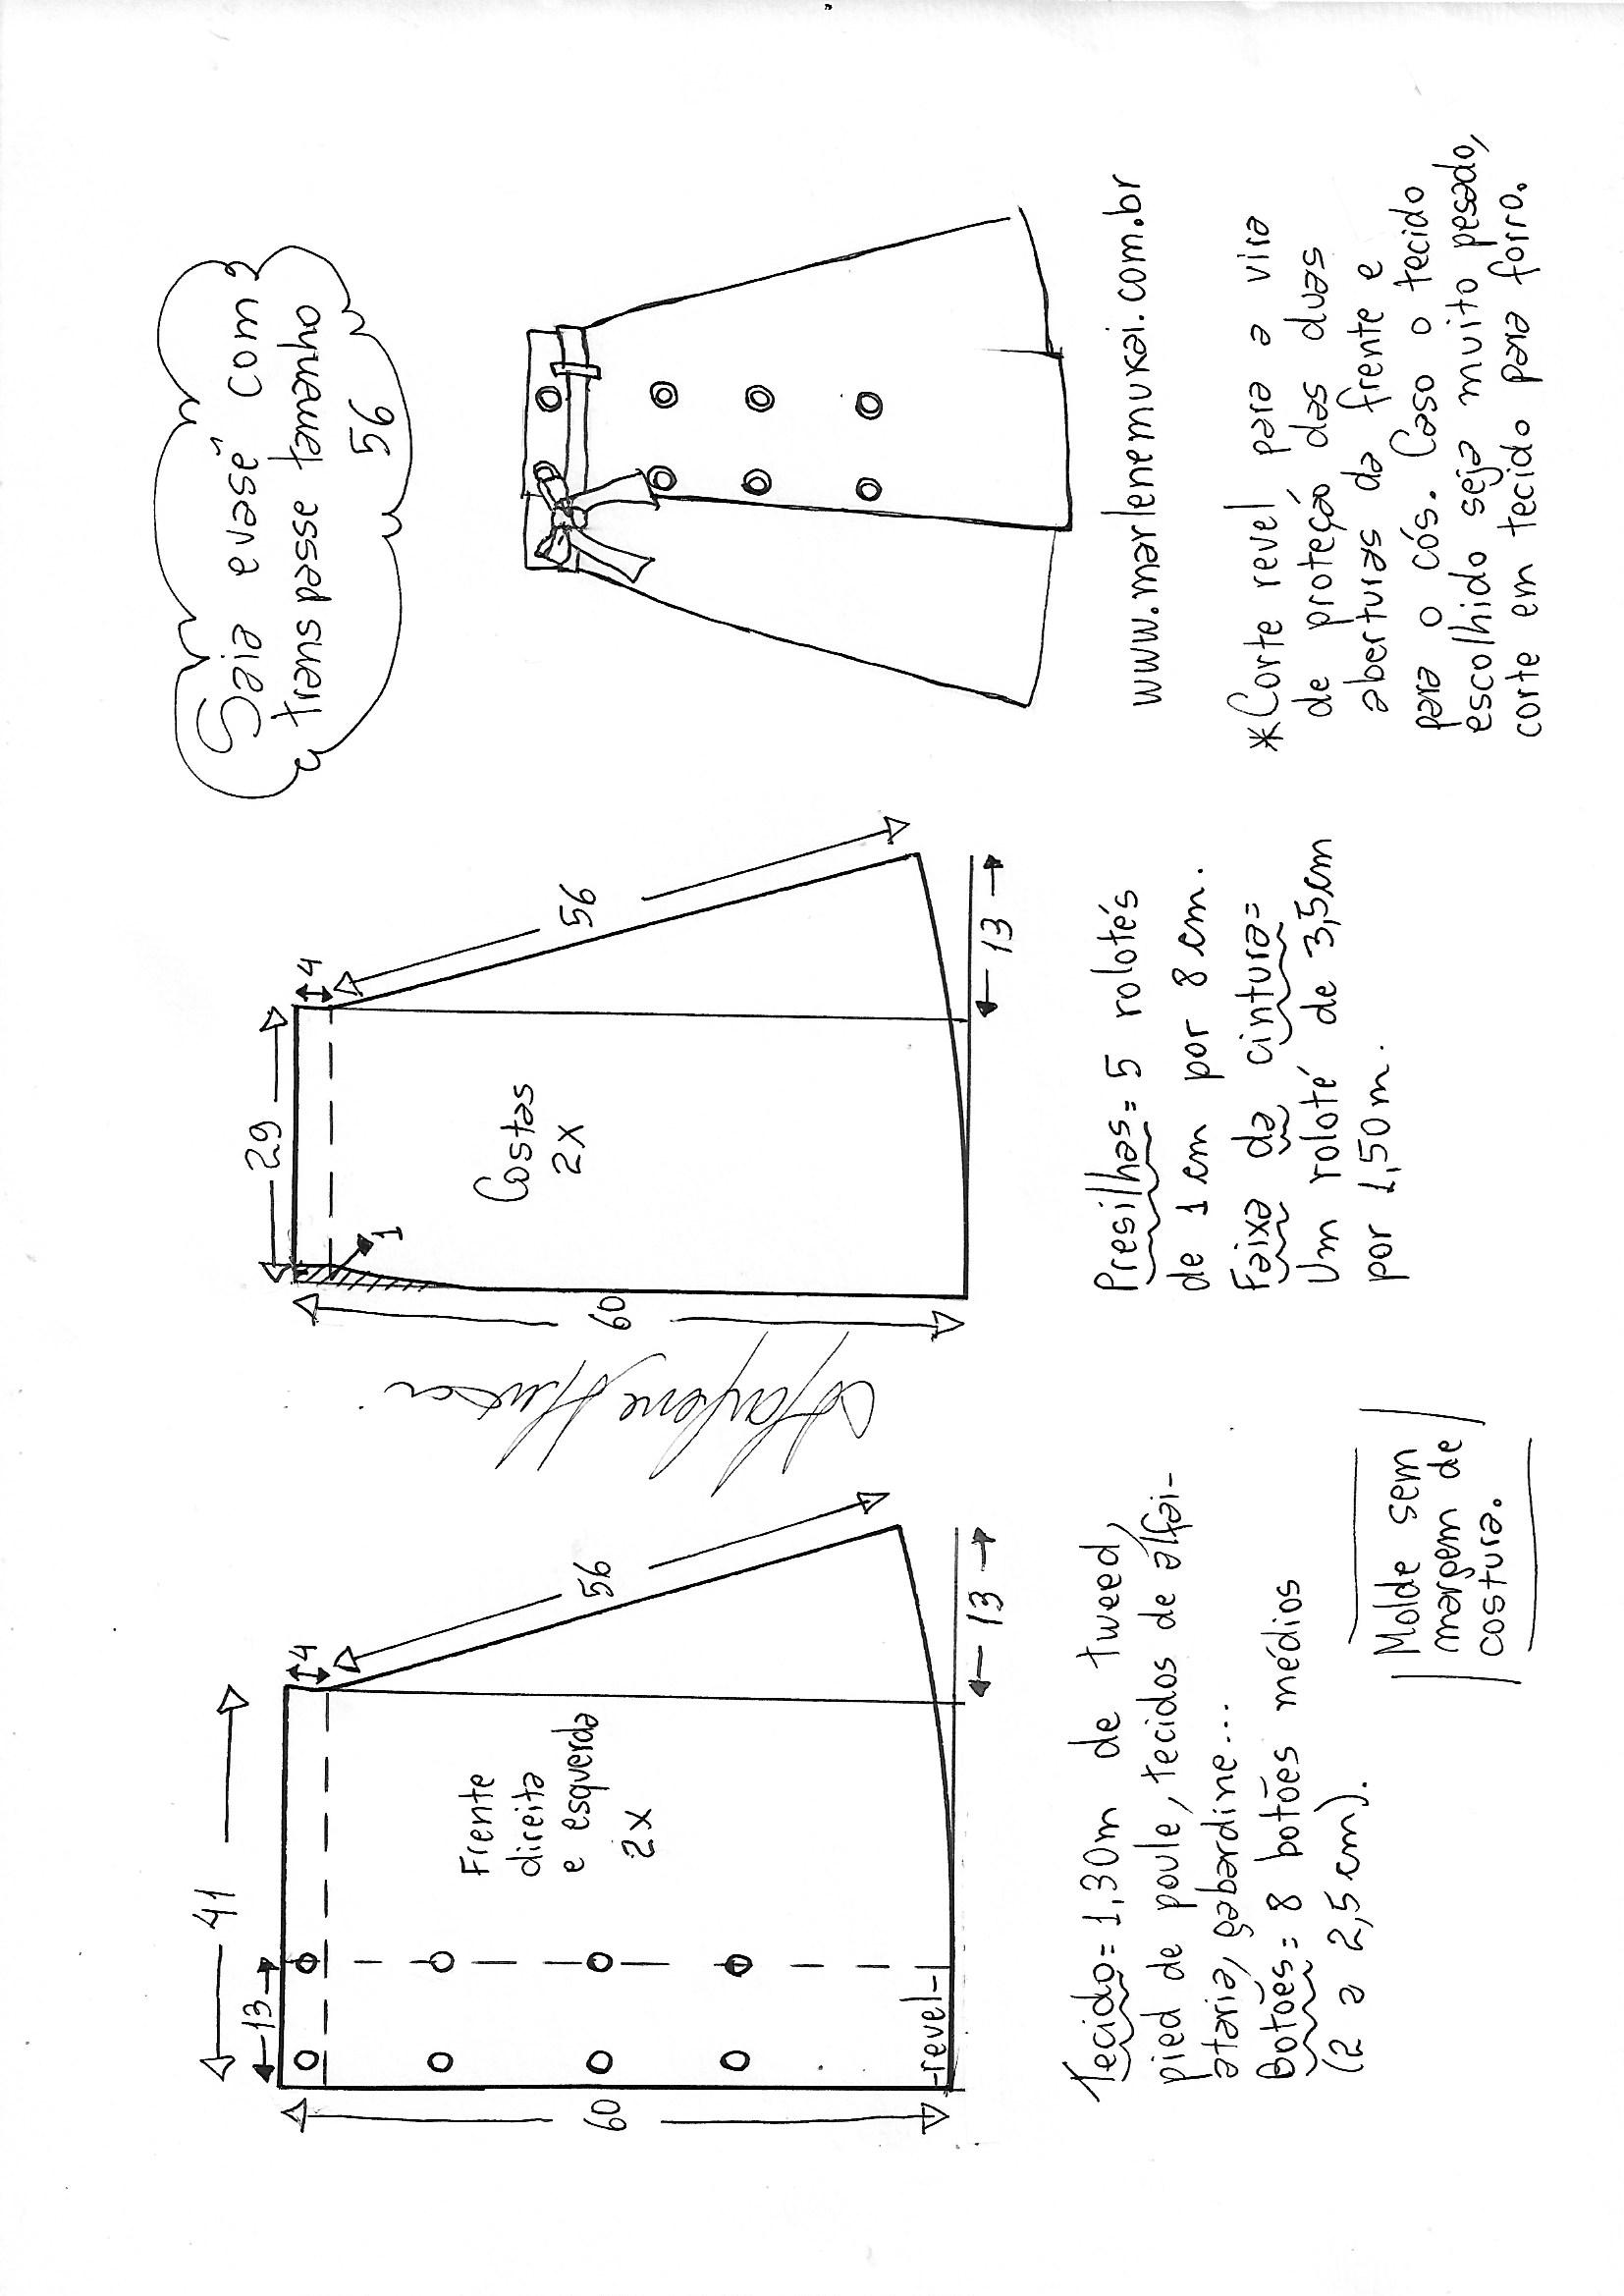 Saia evasê com
transpasse tamanho
56
41
13
4
56
60
13
Frente
direita
e esquerda
2x
-revel-
29
4
56
1
60
13
Costas
2x
Marlene Mukai
www.marlenemukai.com.br
Tecido= 1,30m de tweed,
pied de poule, tecidos de alfai-
ataria, gabardine...
Botões= 8 botões médios
(2 a 2,5cm).
Molde sem
margem de
costura.
Presilhas= 5 rolotés
de 1 cm por 8 cm.
Faixa da cintura=
Um roloté de 3,5cm
por 1,50m.
*Corte revel para a vira
de proteçao das duas
aberturas da frente e
para o cós. Caso o tecido
escolhido seja muito pesado,
corte em tecido para forro.